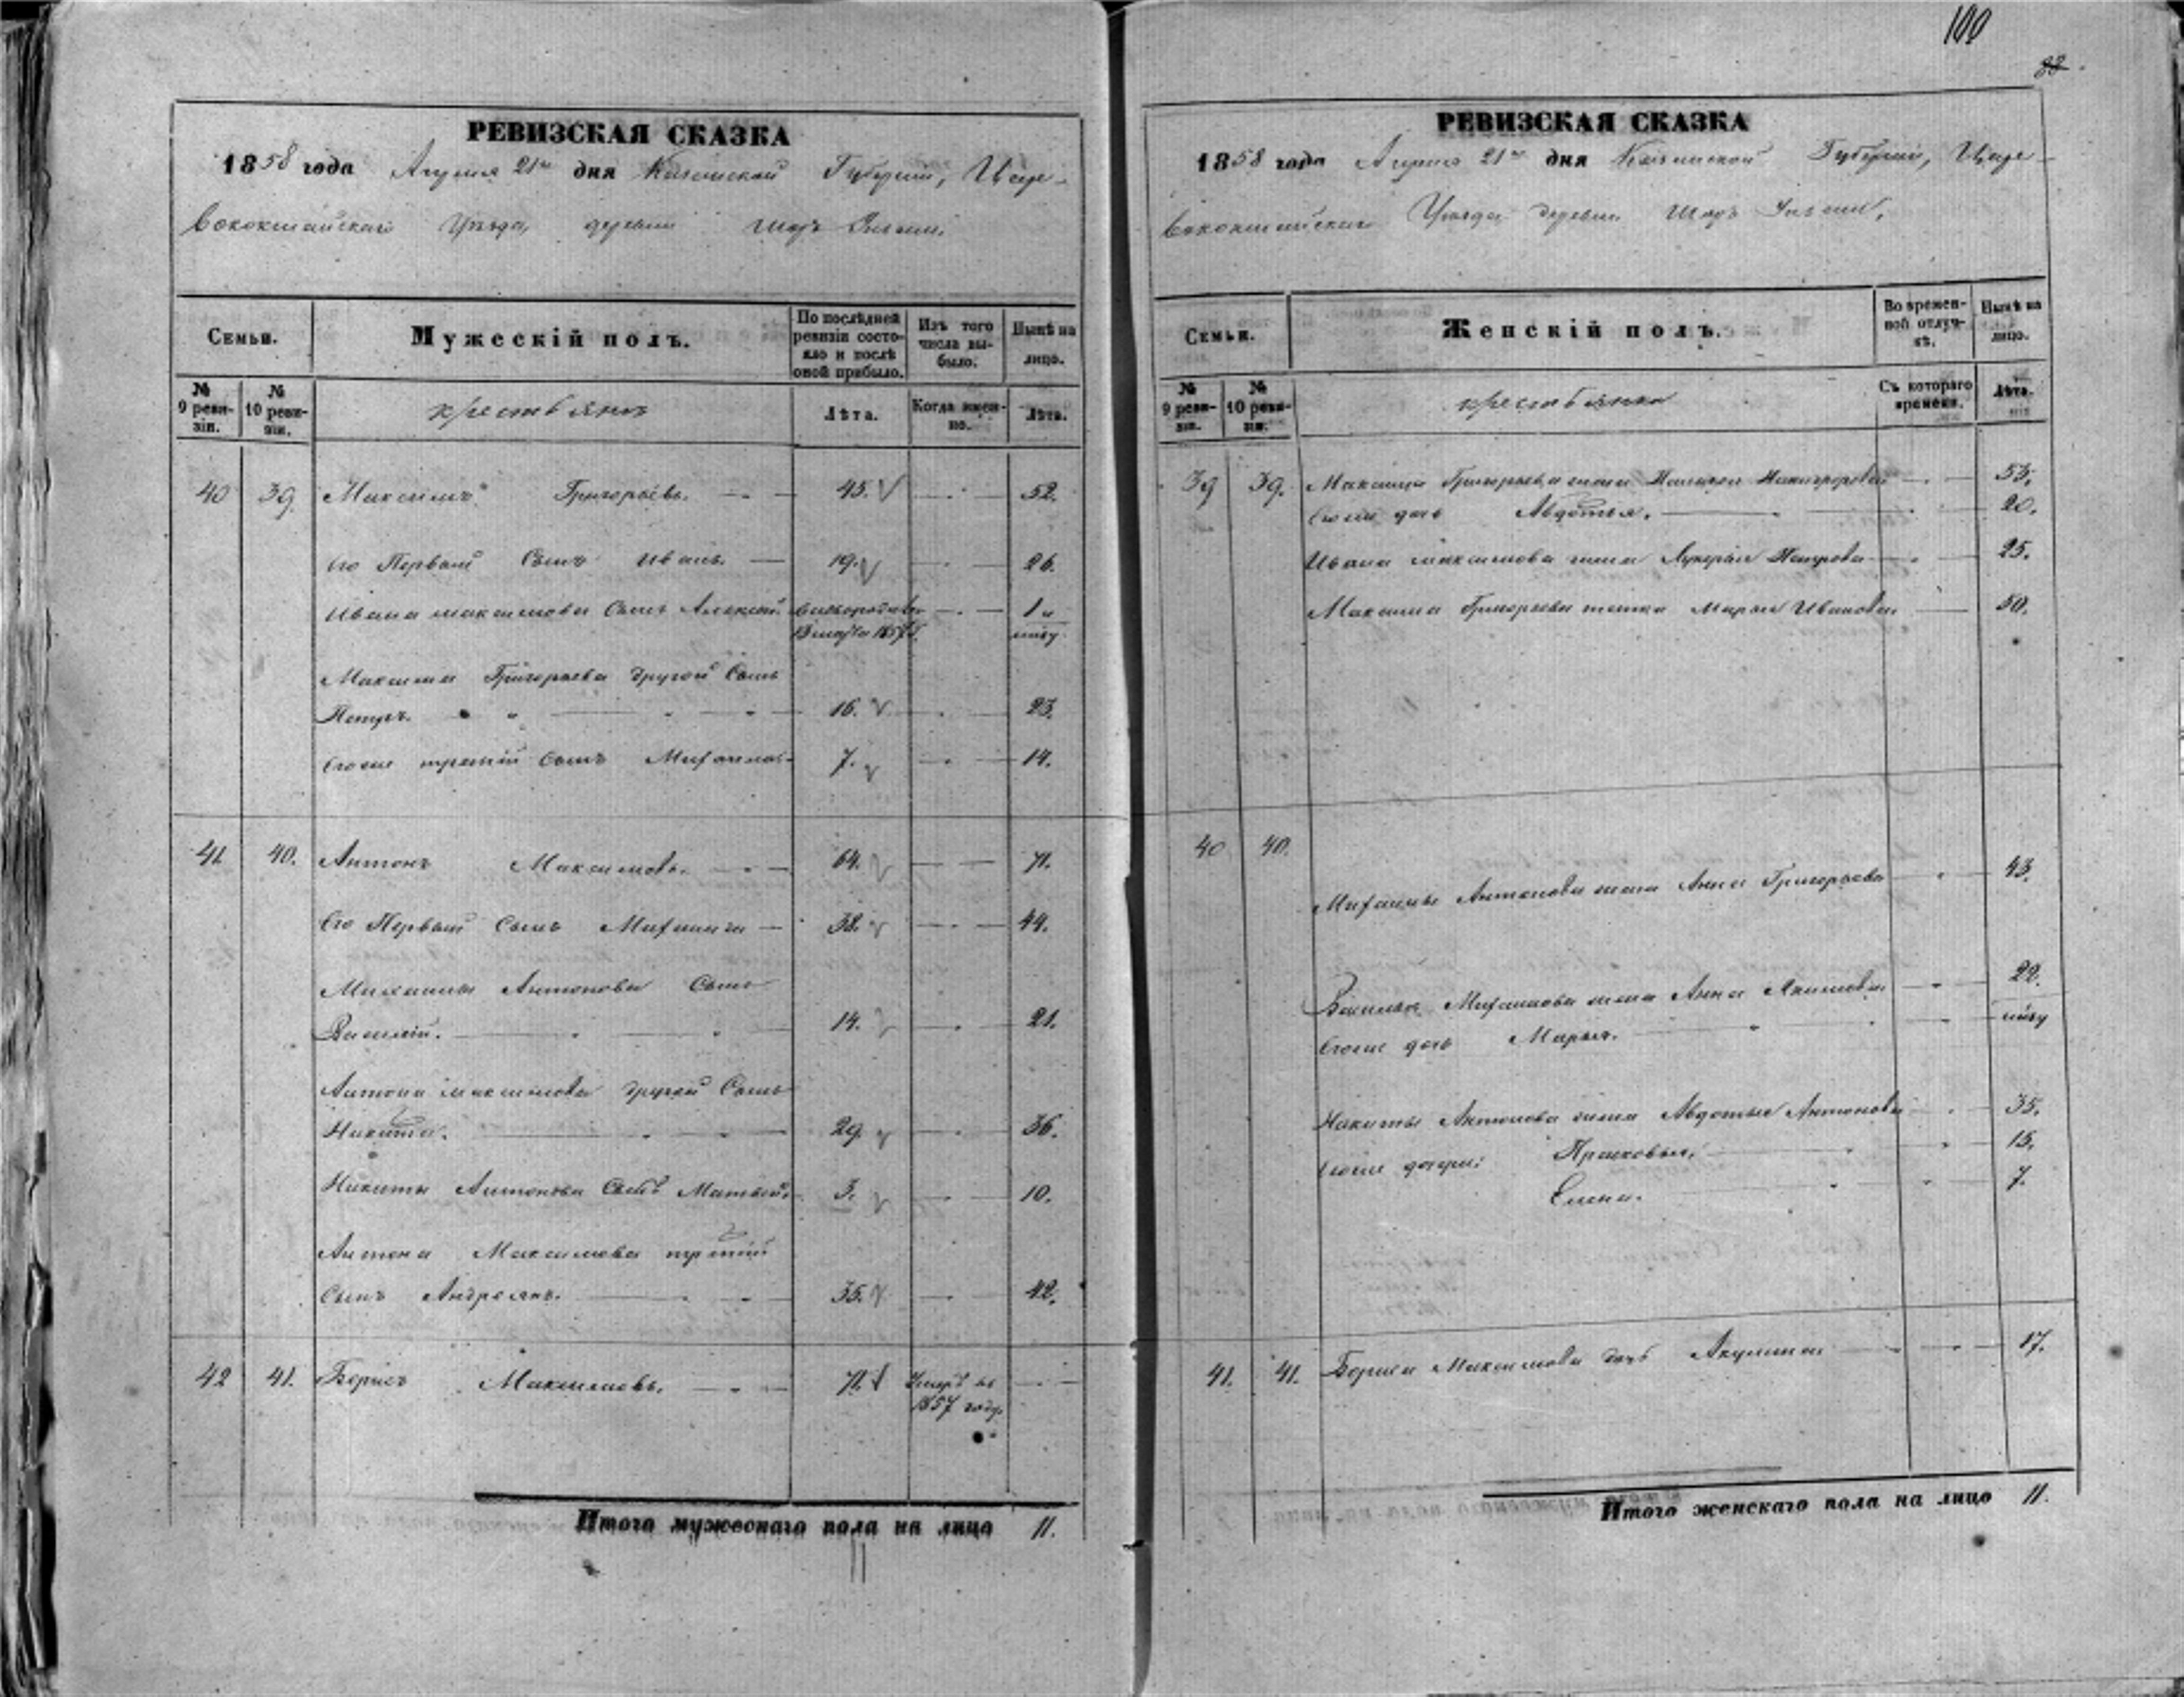 100
88
РЕВИЗСКАЯ СКАЗКА
1858 года Апреля 21го дня Казанской Губернии, Царе-
вококшайскаго Уѣзда, деревни Шор
Семьи.
Мужескій полъ.
По послѣдней ревизіи состо-яло и послѣ оной прибыло.
Изъ того числа вы-было.
Нынѣ на лицо.
№ 9 реви-зіи.
№ 10 реви-зіи.
крестьянъ
Лѣта.
Когда имен-но.
Лѣта.
40 39. Максимъ Григорьевъ. 45. 52.
Его Первый Сынъ Иванъ. 19. 26.
Ивана Максимова Сынъ Алексей. 1 и
1857 г. мѣсу.
Максима Григорьева другой Сынъ
Петръ. 16. 23.
Егоже третій Сынъ Михайла. 7. 14.
41 40. Антонъ Максимовъ. 64. 71.
Его Первый Сынъ Михайла 38. 44.
Михайлы Антонова Сынъ
Василій. 14. 21.
Антона Максимова другой Сынъ
Никита. 29. 36.
Никиты Антонова Сынъ Матвей. 3. 10.
Антона Максимова третій
Сынъ Андреянъ. 35. 42.
42 41. Борисъ Максимовъ. 71. Умеръ въ
1857 году.
Итого мужескаго пола на лицо 11.
РЕВИЗСКАЯ СКАЗКА
1858 года Апреля 21го дня Казанской Губерніи, Царе-
вококшайскаго Уѣзда деревни Шор
Семьи.
Женскій полъ.
Во времен-ной отлуч-кѣ.
Нынѣ на лицо.
№ 9 реви-зіи.
№ 10 реви-зіи.
крестьянка
Съ котораго времени.
Лѣта.
39 39. Максима Григорьева жена Никифорова 53.
Егоже дочь Авдотья. 20.
Ивана Максимова жена Лукерья Петрова 25.
Максима Григорьева тетка Марья Иванова 50.
40 40.
Михайлы Антонова жена Анна Григорьева 43.
Василья Михайлова жена Анна Якимова 22.
Егоже дочь Марья. мѣсу
Никиты Антонова жена Авдотья Антонова 35.
Егоже дочери: Прасковья. 15.
Елена. 7.
41. 41. Бориса Максимова дочь Акулина 17.
Итого женскаго пола на лицо 11.